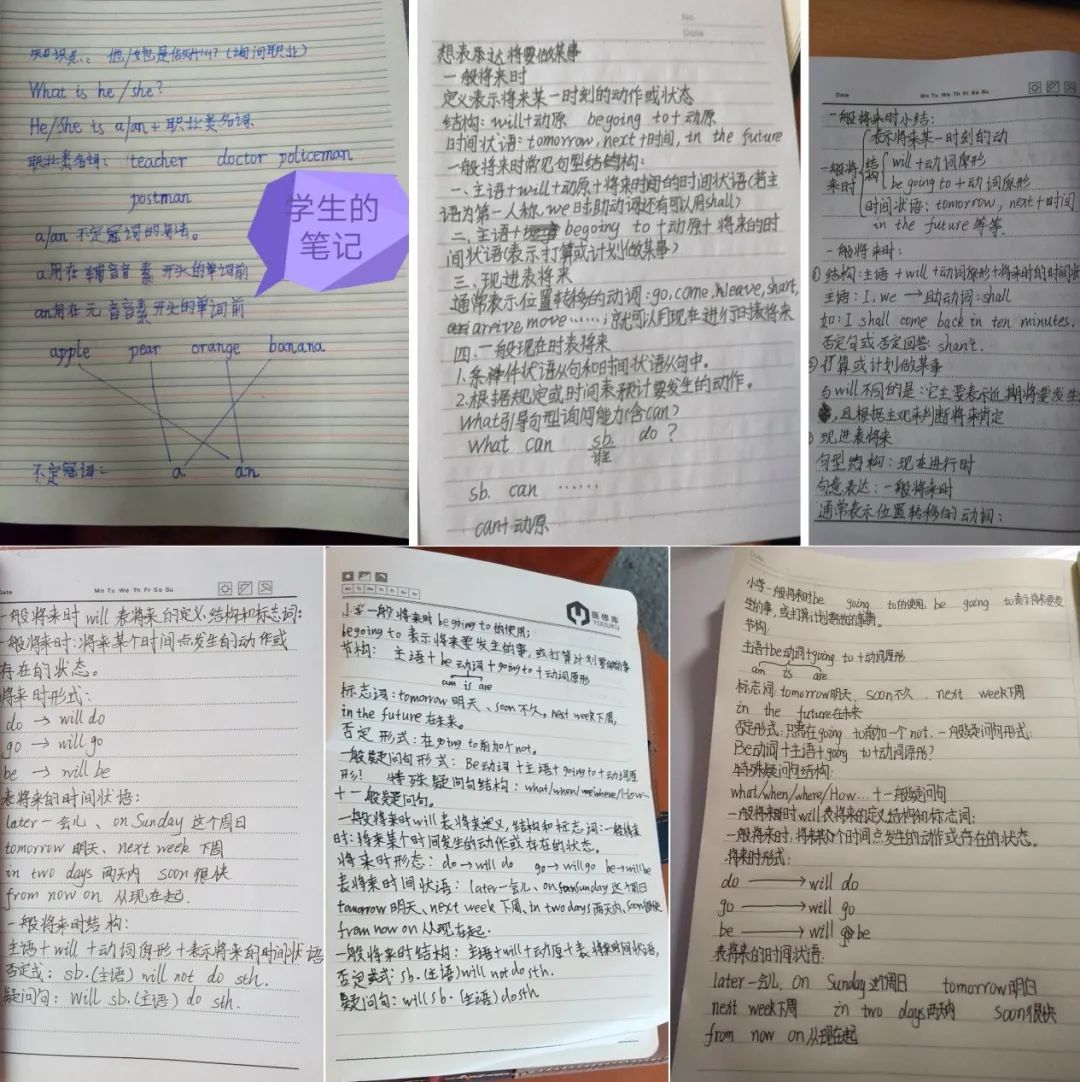 知识点：他/她是做什么？（询问职业）
What is he/she?
He/She is a/an+职业类名词.
职业类名词：teacher doctor policeman
postman
a/an 不定冠词的用法。
a用在辅音音素开头的单词前
an用在元音音素开头的单词前
apple pear orange banana
不定冠词： a an
学生的
笔记
No.
Date
想表达将要做某事
一般将来时
定义表示将来某一时刻的动作或状态
结构：will+动原 begoing to+动原
时间状语：tomorrow,next+时间, in the future
一般将来时常见句型结构：
一、主语+will+动原+将来时间的时间状语(若主
语为第一人称,we时助动词还有可以用shall)
二、主语+begoing to+动原+将来的时
间状语(表示打算或计划做某事)
三、现进表将来
通常表示位置转移的动词：go,come,leave,start,
arrive,move……；就可以用现在进行时表将来
四、一般现在时表将来
1.条件状语从句和时间状语从句中。
2.根据规定或时间表预计要发生的动作。
What引导句型询问能力(含can)
what can sb. do ?
谁
sb. can ……
can+动原
Date Mo Tu We Th Fr Sa Su
一般将来时小结：
表示将来某一时刻的动
一般将来时
结构
will+动词原形
be going to+动词原形
时间状语：tomorrow, next+时间
in the future 等等.
一般将来时：
①结构：主语+will+动词原形+将来时的时间状
主语：I, we → 助动词：shall
如：I shall come back in ten minutes.
否定句或否定回答：shan't.
打算或计划做某事
与will不同的是：它主要表示近期将要发生
,且根据主观来判断将来肯定
现进表将来
句型结构：现在进行时
句意表达：一般将来时
通常表示位置转移的动词：
Date Mo Tu We Th Fr Sa Su
一般将来时 will 表将来的定义、结构和标志词：
一般将来时：将来某个时间点发生的动作或
存在的状态。
将来时形式：
do → will do
go → will go
be → will be
表将来的时间状语：
later一会儿、on Sunday 这个周日
tomorrow 明天、next week 下周
in two days 两天内 soon 很快
from now on 从现在起.
一般将来时结构：
主语+will+动词原形+表示将来的时间状语
否定式：sb.(主语) will not do sth.
疑问句：Will sb.(主语) do sth.
Mo Tu We Th Fr Sa Su
医修库
YIXIUKU
小学一般将来时be going to的使用：
begoing to 表示将来要发生的事,或打算计划要做的事
节构： 主语+be动词+going to+动词原形
am is are
标志词：tomorrow 明天、soon 不久。next week下周,
in the future 在未来。
否定形式：在going to前加个not。
一般疑问句形式：Be动词+主语+going to+动词原
形！ 特殊疑问句结构：what/when/where/How…
+一般疑问句。
一般将来时will表将来定义,结构和标志词：一般将来
时：将来某个时间发生的动作或存在的状态。
将来时形态：do→will do go→will go be→will be
表将来时间状语：later一会儿、on Sunday这个周日
tomorrow明天、next week 下周、in two days两天内、soon很快
from now on 从现在起.
一般将来时结构：主语+will+动原+表将来时间状语,
否定式：sb.(主语)will not do sth
疑问句：will sb.(主语)do sth
Date
小学一般将来时be going to的使用. be going to表示将来要发
生的事,或打算计划要做的事情.
节构：
主语+be动词+going to+动词原形
am is are
标志词：tomorrow明天、soon不久 . next week下周
in the future在未来
否定形式：只需在going to前加一个not. 一般疑问句形式：
Be动词+主语+going to+动词原形?
特殊疑问句结构：
what/when/where/How…+一般疑问句
一般将来时will表将来的定义结构和标志词：
一般将来时：将来某个时间点发生的动作或存在的状态。
将来时形式：
do → will do
go → will go
be → will be
表将来的时间状语：
later一会儿、on Sunday这个周日 tomorrow明日
next week下周 in two days两天内 soon很快
from now on从现在起